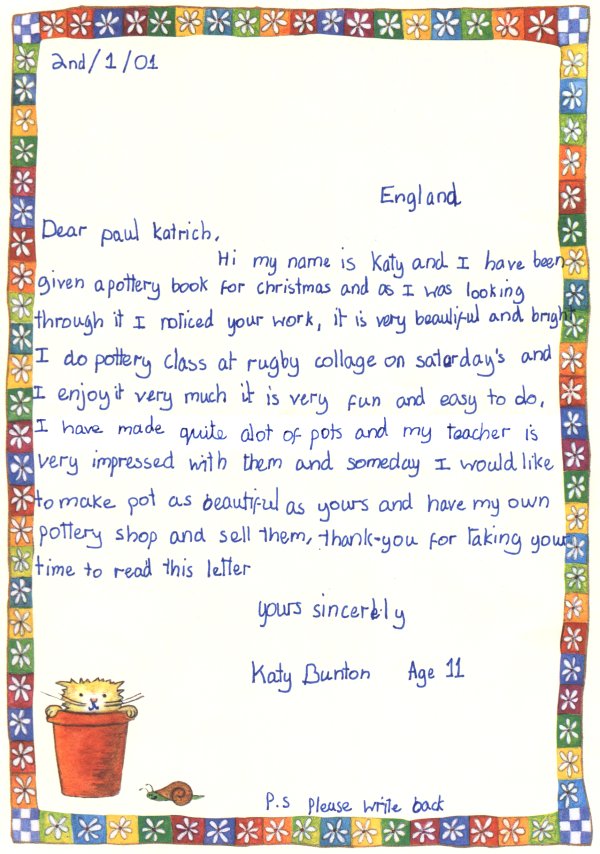 2nd/1/01
England
Dear paul Katrich,
Hi my name is Katy and I have been
given a pottery book for christmas and as I was looking
through it I noticed your work, it is very beautiful and bright
I do pottery class at rugby collage on saterday's and
I enjoy it very much it is very fun and easy to do,
I have made quite alot of pots and my teacher is
very impressed with them and someday I would like
to make pot as beautiful as yours and have my own
pottery shop and sell them, thank-you for taking your
time to read this letter
yours sincerely
Katy Bunton Age 11
P.s please write back